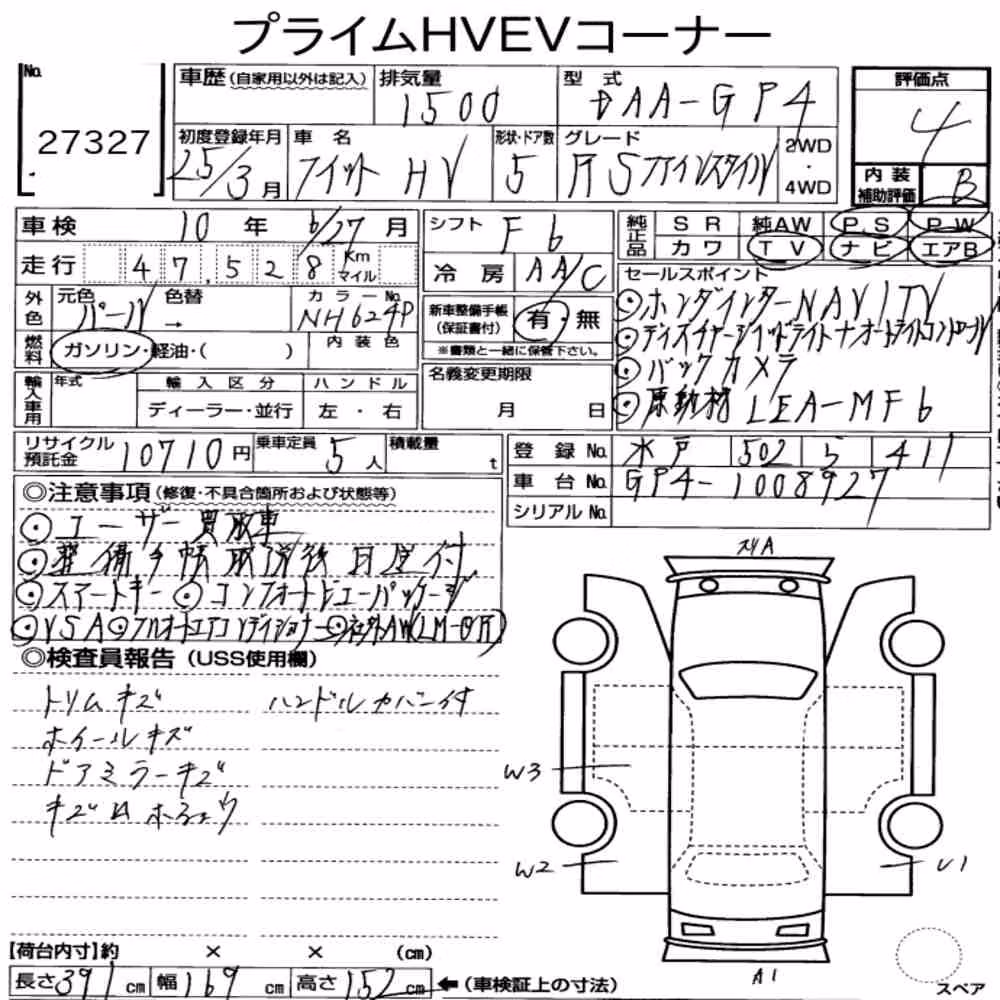 プライムHVEVコーナー
No.
27327
車歴 (自家用以外は記入) 排気量 1500 型式 DAA-GP4 評価点 4
初度登録年月 25/3月 車名 フィット HV 形状・ドア数 5 グレード RSファインスタイル 2WD・4WD 内装補助評価 B
車検 10年 6/27月 シフト F6 純正品 SR 純AW PS PW
走行 47,528 Km マイル 冷房 AA/C カワ TV ナビ エアB
外色 元色 パール 色替 → カラーNo. NH624P 新車整備手帳(保証書付) 有・無
燃料 ガソリン・軽油・( ) 内装色 ※書類と一緒に保管下さい。
輸入車用 年式 輸入区分 ディーラー・並行 ハンドル 左・右 名義変更期限 月 日
セールスポイント
⊙ホンダインターNAVI TV
⊙ディスチャージヘッドライト オートライトコントロール
⊙バックカメラ
⊙原動機 LEA-MF6
リサイクル預託金 10710円 乗車定員 5人 積載量 t
登録No. 水戸 502 ら 411
車台No. GP4-1008927
シリアルNo.
◎注意事項 (修復・不具合箇所および状態等)
⊙ユーザー買取車
⊙整備手帳取説後日送付
⊙スマートキー ⊙コンフォートビューパッケージ
⊙VSA ⊙フルオートエアコンディショナー ⊙社外AW
◎検査員報告 (USS使用欄)
トリムキズ ハンドルカバー付
ホイールキズ
ドアミラーキズ
キズ凹
スリA
W3
W2
U1
A1
スペア
【荷台内寸】約 × × (cm)
長さ 391 cm 幅 169 cm 高さ 152 cm ←(車検証上の寸法)